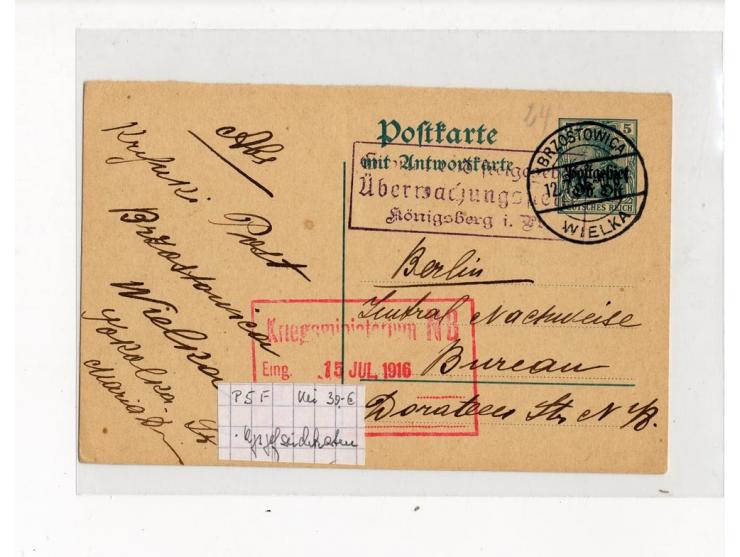 Postkarte
mit Antwortkarte
Überwachungs
Königsberg i.
5
BRZOSTOWICA
12.
Postgebiet
Ob. Ost
DEUTSCHES REICH
WIELKA
24
Abs
Krynki Post
Brzostowica
Wielka
Sokolka
Berlin
Zentral Nachweise
Bureau
Doroteen Str N
Kriegsministerium NB
Eing. 15 JUL 1916
P5 F Mi 30,- €